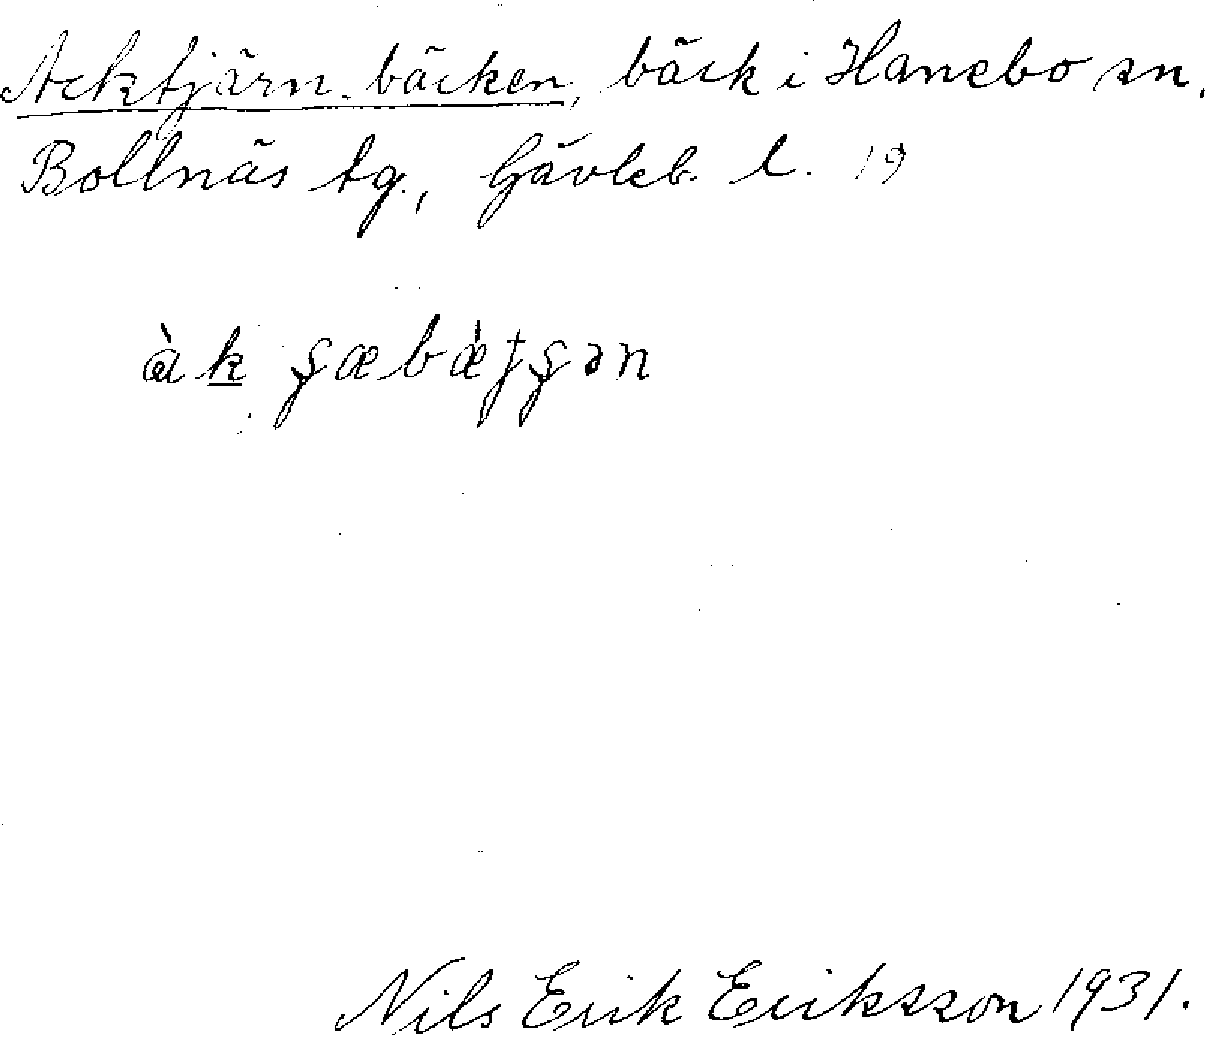 Acktjärn-bäcken, bäck i Hanebo sn,
Bollnäs tg., Gävleb. l. 19
Nils Erik Eriksson 1931.